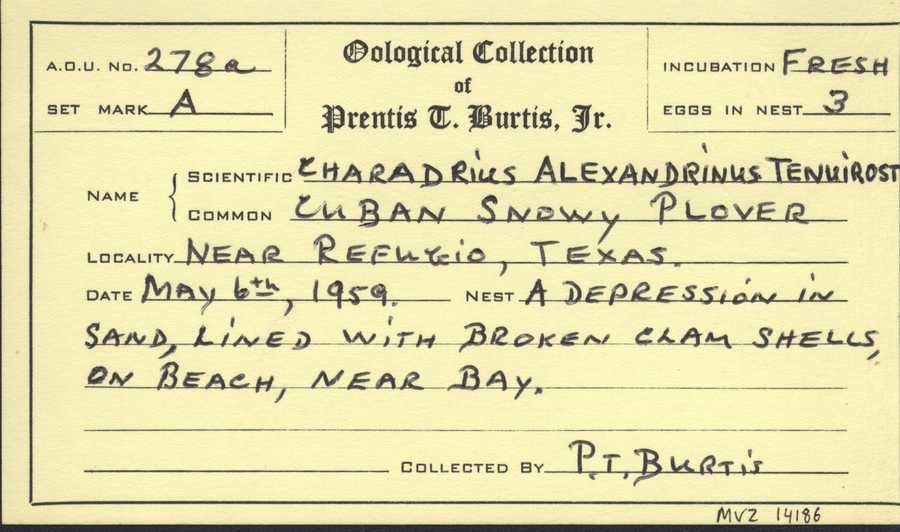 A.O.U. No. 278a
SET MARK A
Oological Collection
of
Prentis T. Burtis, Jr.
INCUBATION FRESH
EGGS IN NEST 3
NAME
SCIENTIFIC CHARADRIUS ALEXANDRINUS TENUIROST
COMMON CUBAN SNOWY PLOVER
LOCALITY NEAR REFUGIO, TEXAS.
DATE MAY 6th, 1959. NEST A DEPRESSION IN
SAND, LINED WITH BROKEN CLAM SHELLS,
ON BEACH, NEAR BAY.
COLLECTED BY P.T. BURTIS
MVZ 14186